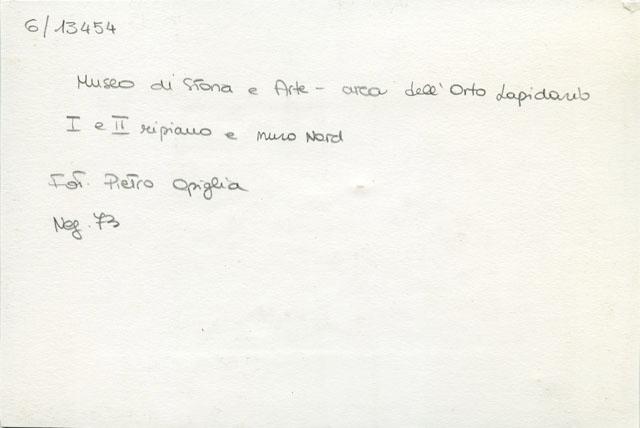 6/13454
Museo di Storia e Arte - area dell'Orto Lapidario
I e II ripiano e muro Nord
Fot. Pietro Opiglia
Neg. 73